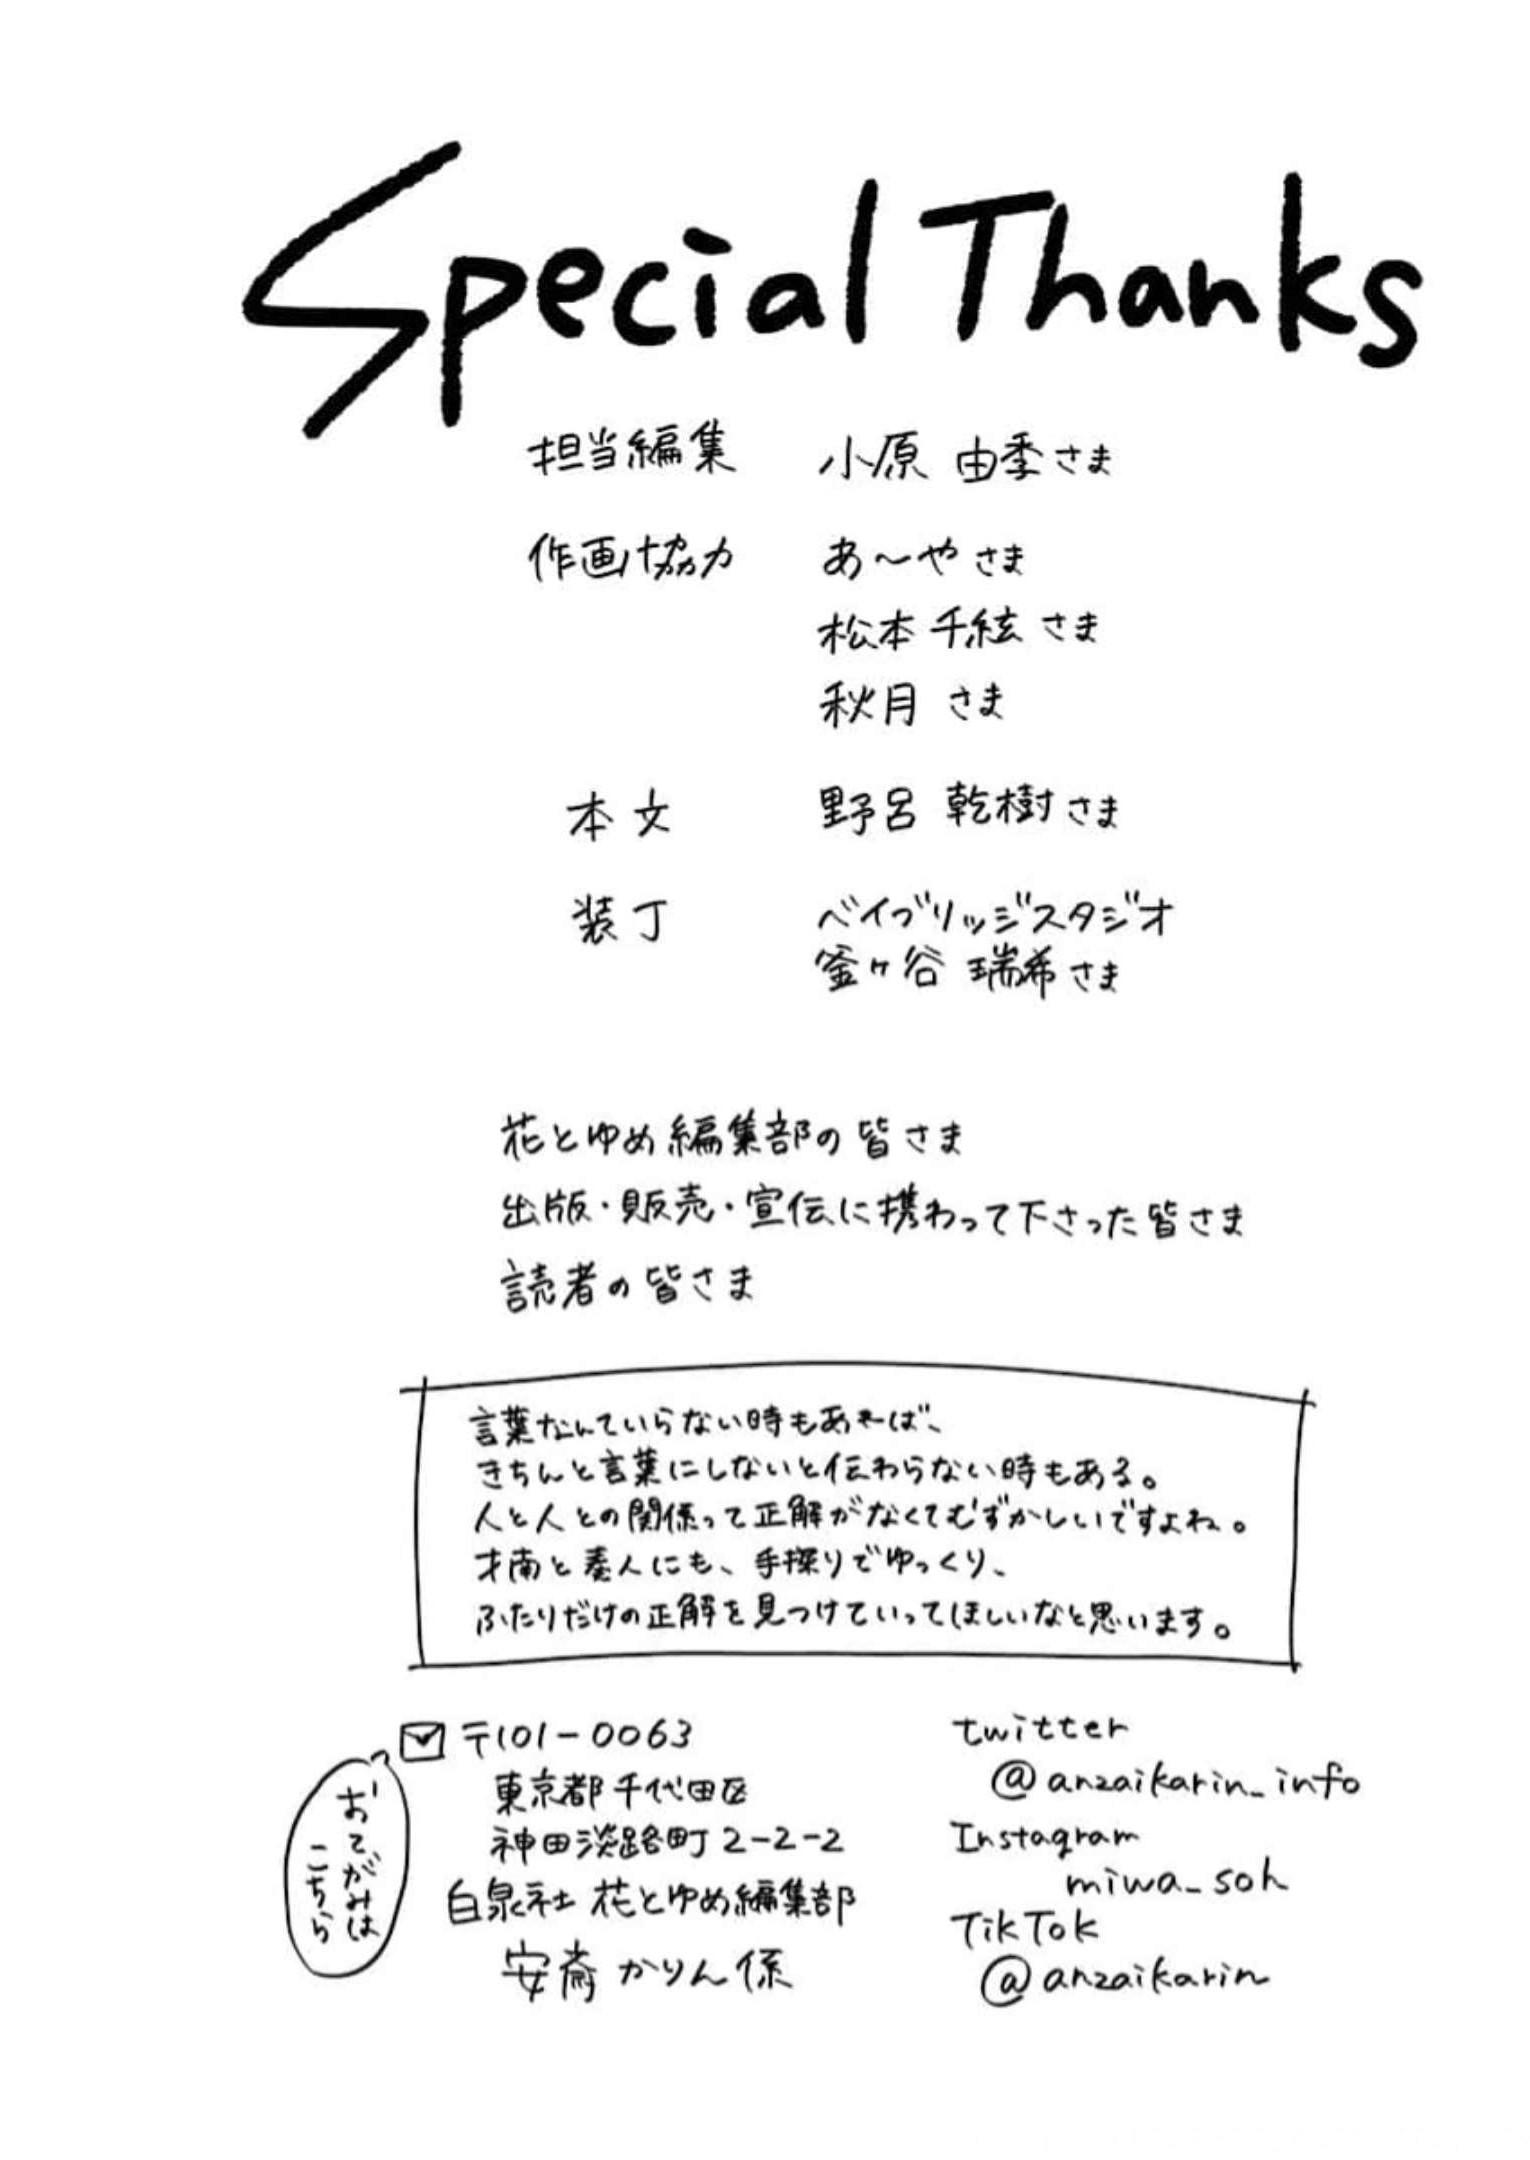 Special Thanks
担当編集 小原 由季さま
作画協力 あ〜やさま
松本 千絃さま
秋月さま
本文 野呂 乾樹さま
装丁 ベイブリッジスタジオ
釜ヶ谷 瑞希さま
花とゆめ編集部の皆さま
出版・販売・宣伝に携わって下さった皆さま
読者の皆さま
言葉なんていらない時もあれば、
きちんと言葉にしないと伝わらない時もある。
人と人との関係って正解がなくてむずかしいですよね。
才南と奏人にも、手探りでゆっくり、
ふたりだけの正解を見つけていってほしいなと思います。
おてがみは
こちら
〒101-0063
東京都千代田区
神田淡路町2-2-2
白泉社 花とゆめ編集部
安斎かりん係
twitter
@anzaikarin_info
Instagram
miwa_soh
TikTok
@anzaikarin